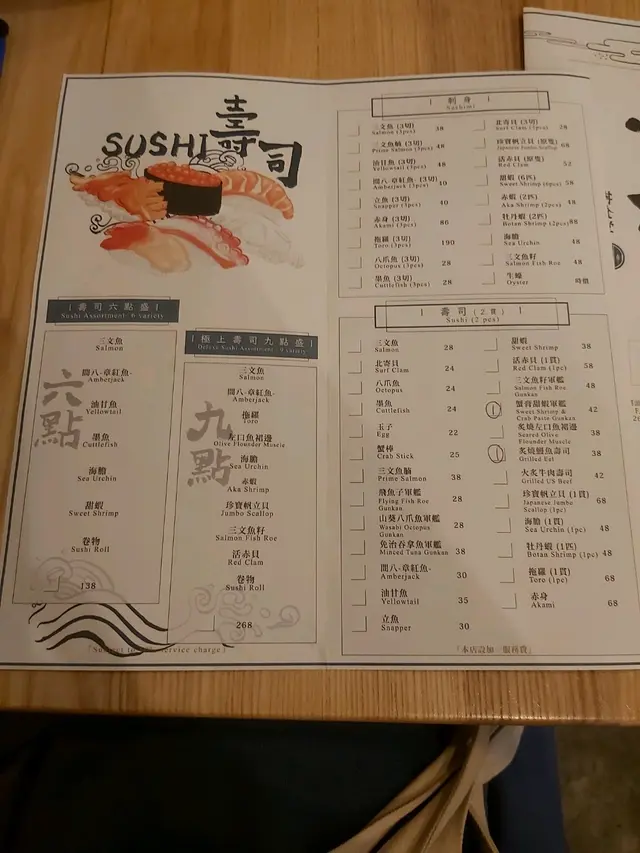 壽司
SUSHI
壽司六點盛
Sushi Assortment- 6 variety
六點
三文魚
Salmon
間八-章紅魚-
Amberjack
油甘魚
Yellowtail
墨魚
Cuttlefish
海膽
Sea Urchin
甜蝦
Sweet Shrimp
卷物
Sushi Roll
138
極上壽司九點盛
Deluxe Sushi Assortment- 9 variety
九點
三文魚
Salmon
間八-章紅魚-
Amberjack
拖羅
Toro
左口魚裙邊
Olive Flounder Muscle
海膽
Sea Urchin
赤蝦
Aka Shrimp
珍寶帆立貝
Jumbo Scallop
三文魚籽
Salmon Fish Roe
活赤貝
Red Clam
卷物
Sushi Roll
268
刺身
Sashimi
三文魚 (3切) 38
Salmon (3pcs)
三文魚腩 (3切) 48
Prime Salmon (3pcs)
油甘魚 (3切) 48
Yellowtail (3pcs)
間八-章紅魚- (3切)
Amberjack (3pcs)
立魚 (3切) 40
Snapper (3pcs)
赤身 (3切) 86
Akami (3pcs)
拖羅 (3切) 190
Toro (3pcs)
八爪魚 (3切) 28
Octopus (3pcs)
墨魚 (3切) 28
Cuttlefish (3pcs)
北寄貝 (3切) 28
Surf Clam (3pcs)
珍寶帆立貝 (原隻) 68
活赤貝 (原隻) 52
Red Clam
甜蝦 (6匹) 58
Sweet Shrimp (6pcs)
赤蝦 (2匹) 48
Aka Shrimp (2pcs)
牡丹蝦 (2匹) 88
Botan Shrimp (2pcs)
海膽 48
Sea Urchin
三文魚籽 48
Salmon Fish Roe
生蠔 時價
Oyster
壽司 (2貫)
Sushi (2 pcs)
三文魚 28
Salmon
北寄貝 24
Surf Clam
八爪魚 24
Octopus
墨魚 24
Cuttlefish
玉子 22
Egg
蟹棒 25
Crab Stick
三文魚腩 38
Prime Salmon
飛魚子軍艦 28
Flying Fish Roe
Gunkan
山葵八爪魚軍艦 28
Wasabi Octopus
Gunkan
免治吞拿魚軍艦
Minced Tuna Gunkan 38
間八-章紅魚- 30
Amberjack
油甘魚 35
Yellowtail
立魚 30
Snapper
甜蝦 38
Sweet Shrimp
活赤貝 (1貫) 58
Red Clam (1pc)
三文魚籽軍艦 48
Salmon Fish Roe
Gunkan
蟹膏甜蝦軍艦 42
Sweet Shrimp &
Crab Paste Gunkan
炙燒左口魚裙邊 38
Seared Olive
Flounder Muscle
炙燒鰻魚壽司 38
Grilled Eel
火炙牛肉壽司 42
Grilled US Beef
珍寶帆立貝 (1貫) 68
Japanese Jumbo
Scallop (1pc)
海膽 (1貫) 48
Sea Urchin (1pc)
牡丹蝦 (1匹) 48
Botan Shrimp (1pc)
拖羅 (1貫) 68
Toro (1pc)
赤身 68
Akami